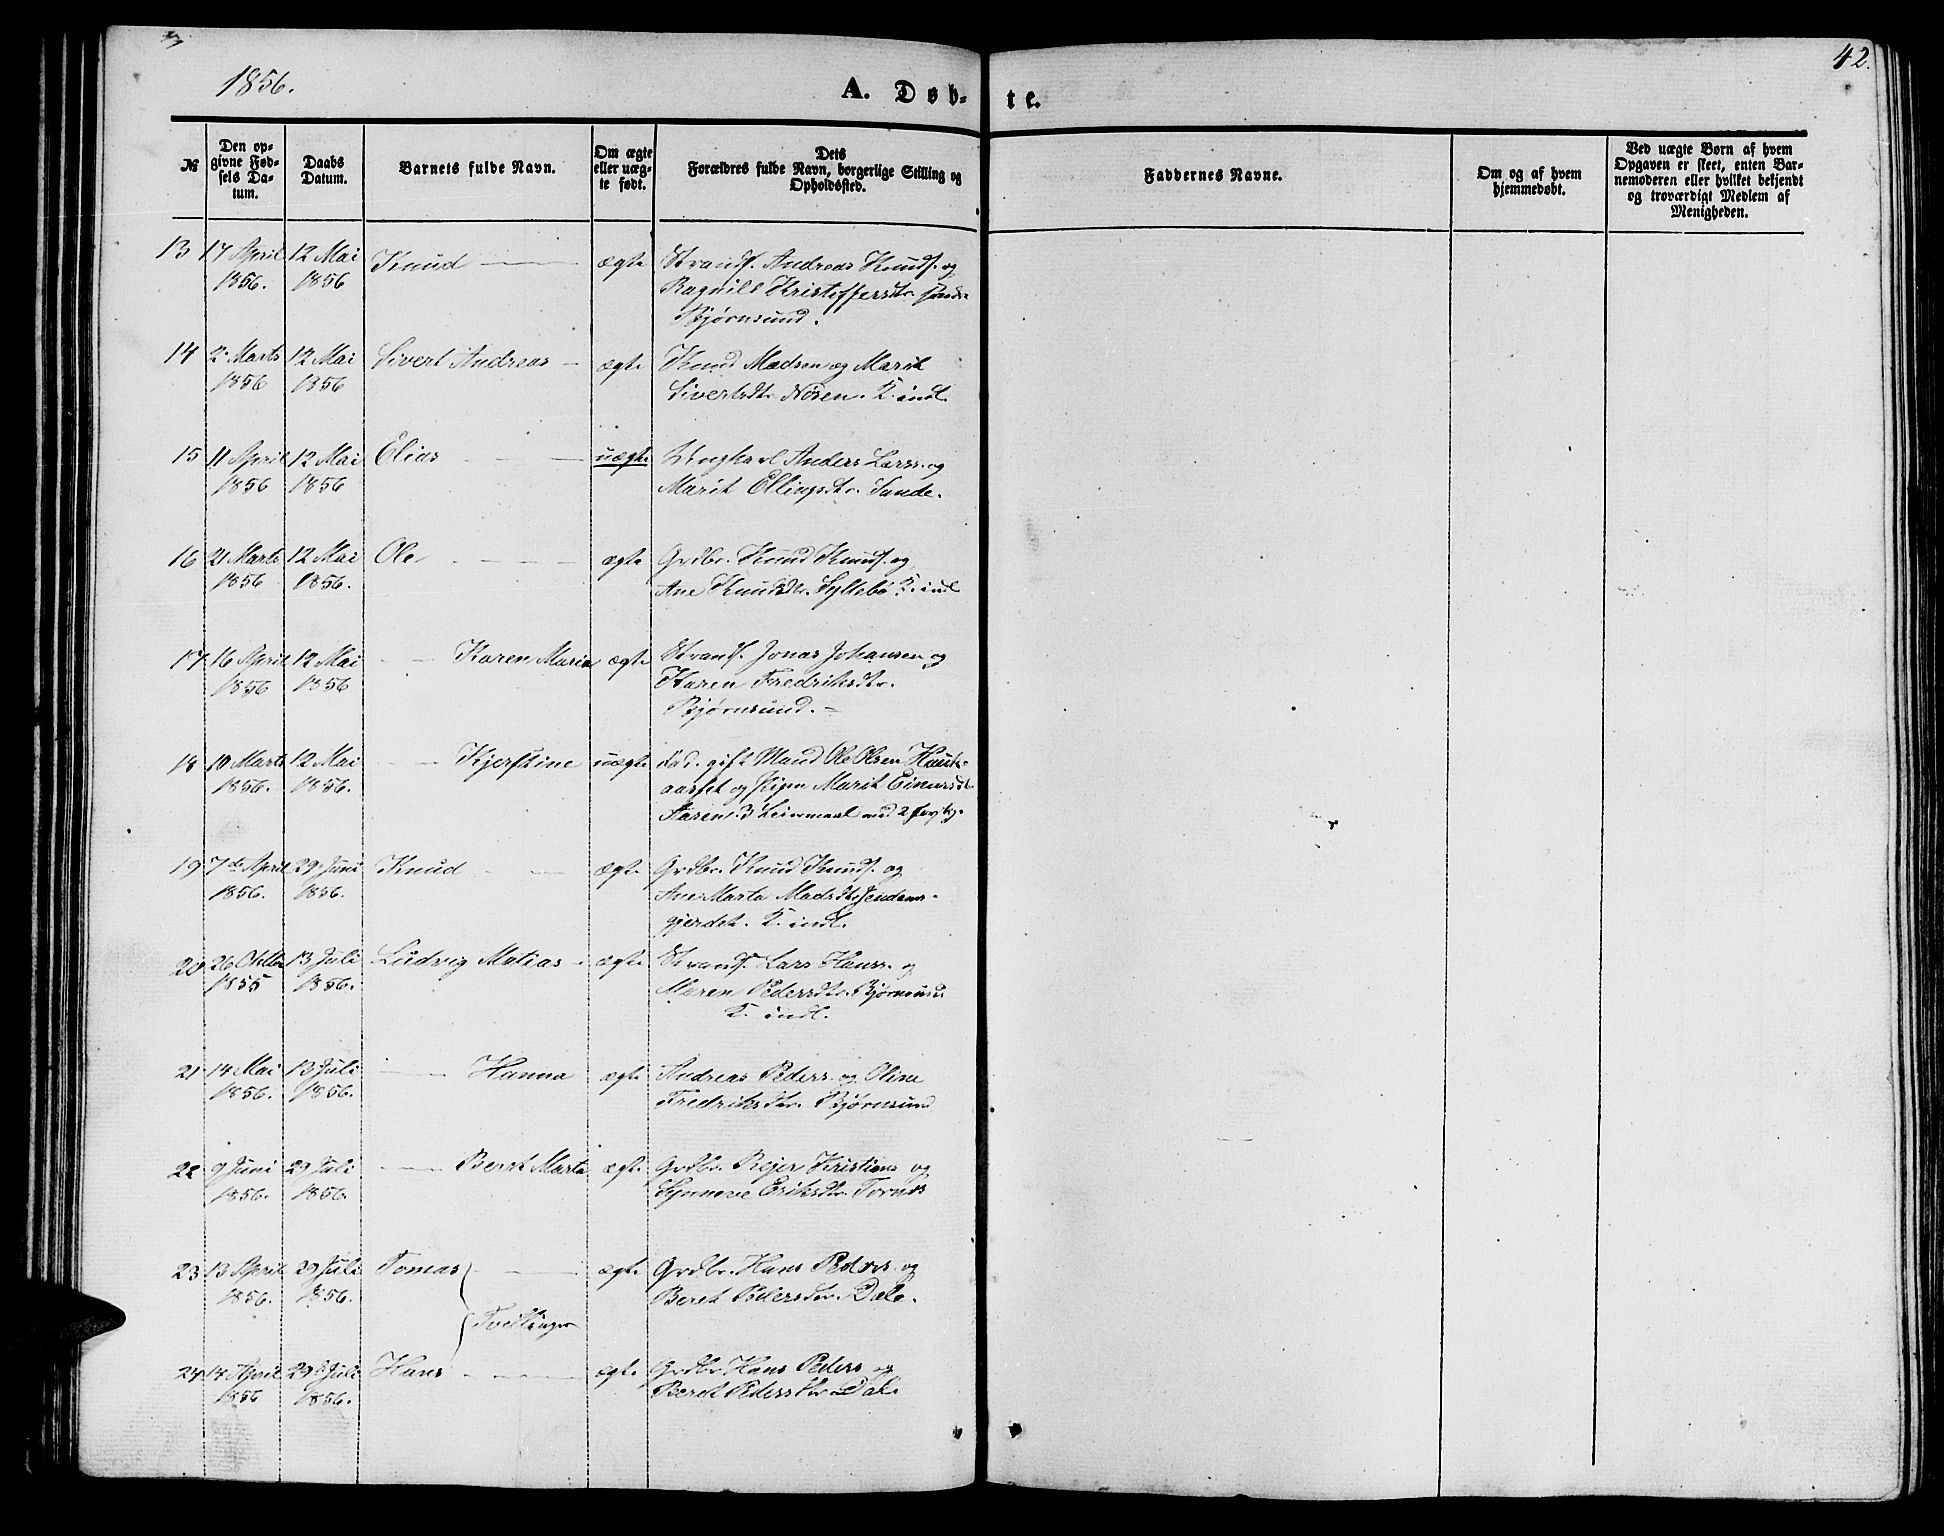 42.
1856.
A. Døb-
te.
№
Den op-
givne Fød-
sels Da-
tum.
Daabs
Datum.
Barnets fulde Navn.
Om ægte
eller uæg-
te født.
Dets
Forældres fulde Navn, borgerlige Stilling og
Opholdssted.
Faddernes Navne.
Om og af hvem
hjemmedøbt.
Ved uægte Børn af hvem
Opgaven er skeet, enten Bar-
nemoderen eller hvilket bekjendt
og troværdigt Medlem af
Menigheden.
13 17 April 12 Mai Knud ægte Strands. Andreas Knuds. og
1856. 1856 Ragnild Kristoffersdtr.
Bjørnsund.
14 2. Marts 12 Mai Sivert Andreas - ægte Knud Madsen og Marit
1856 1856 Sivertsdtr. Nøren. K. indl.
15 11 April 12 Mai Elias uægte Ungkarl Anders Larss. og
1856 1856 Marit Ellingsdtr. Sunde.
16 21 Marts 12 Mai Ole ægte Grdbr. Knud Knuds. og
1856 1856. Ane Knudsdtr. Syltebø K. indl
17 16 April 12 Mai Karen Maria ægte Strands. Jonas Johansen og
1856 1856 Karen Fredriksdtr.
Bjørnsund. -
18 10 Marts 12 Mai Kjerstine uægte gift Mand Ole Olsen
1856. 1856. og Pigen Marit
3 Leiermaal
19 7de April 29 Juni Knud ægte Grdbr. Knud Knuds. og
1856. 1856. Ane Marta Madsdtr.
gjerdet. K. indl.
20 26 Oktbr 13 Juli Ludvig Matias - ægte Strands. Lars Hanss. og
1855 1856. Maren Pedersdtr. Bjørnsund
K. indl.
21 14 Mai 13 Juli Hanna ægte Andreas Peders. og Oline
1856. 1856. Fredriksdtr. Bjørnsund
22 9 Juni 29 Juli Beret Marta ægte Grdbr. Rejer Kristians. og
1856. 1856. Synneve Eriksdtr. Tornes
23 13 April 29 Juli Tomas ægte Grdbr. Hans Peders. og
1856. 1856. Beret Pedersdtr. Dale.
Tvillinger
24 14 April 29 Juli Hans ægte Grdbr. Hans Peders. og
1856 1856. Beret Pedersdtr. Dale